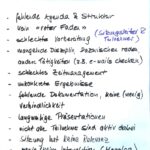 - fehlende Agenda & Struktur
- kein "roter Faden"
- schlechte Vorbereitung (Sitzungsleiter & Teilnehmer)
- mangelnde Disziplin, Dazwischen reden
andere Tätigkeiten (z.B. e-mails checken)
- schlechtes Zeitmanagement
- unkonkrete Ergebnisse
- fehlende Dokumentation, keine (wenig)
Verbindlichkeit
- langweilige Präsentationen
- nicht alle Teilnehmer sind aktiv dabei
- Sitzung hat keine